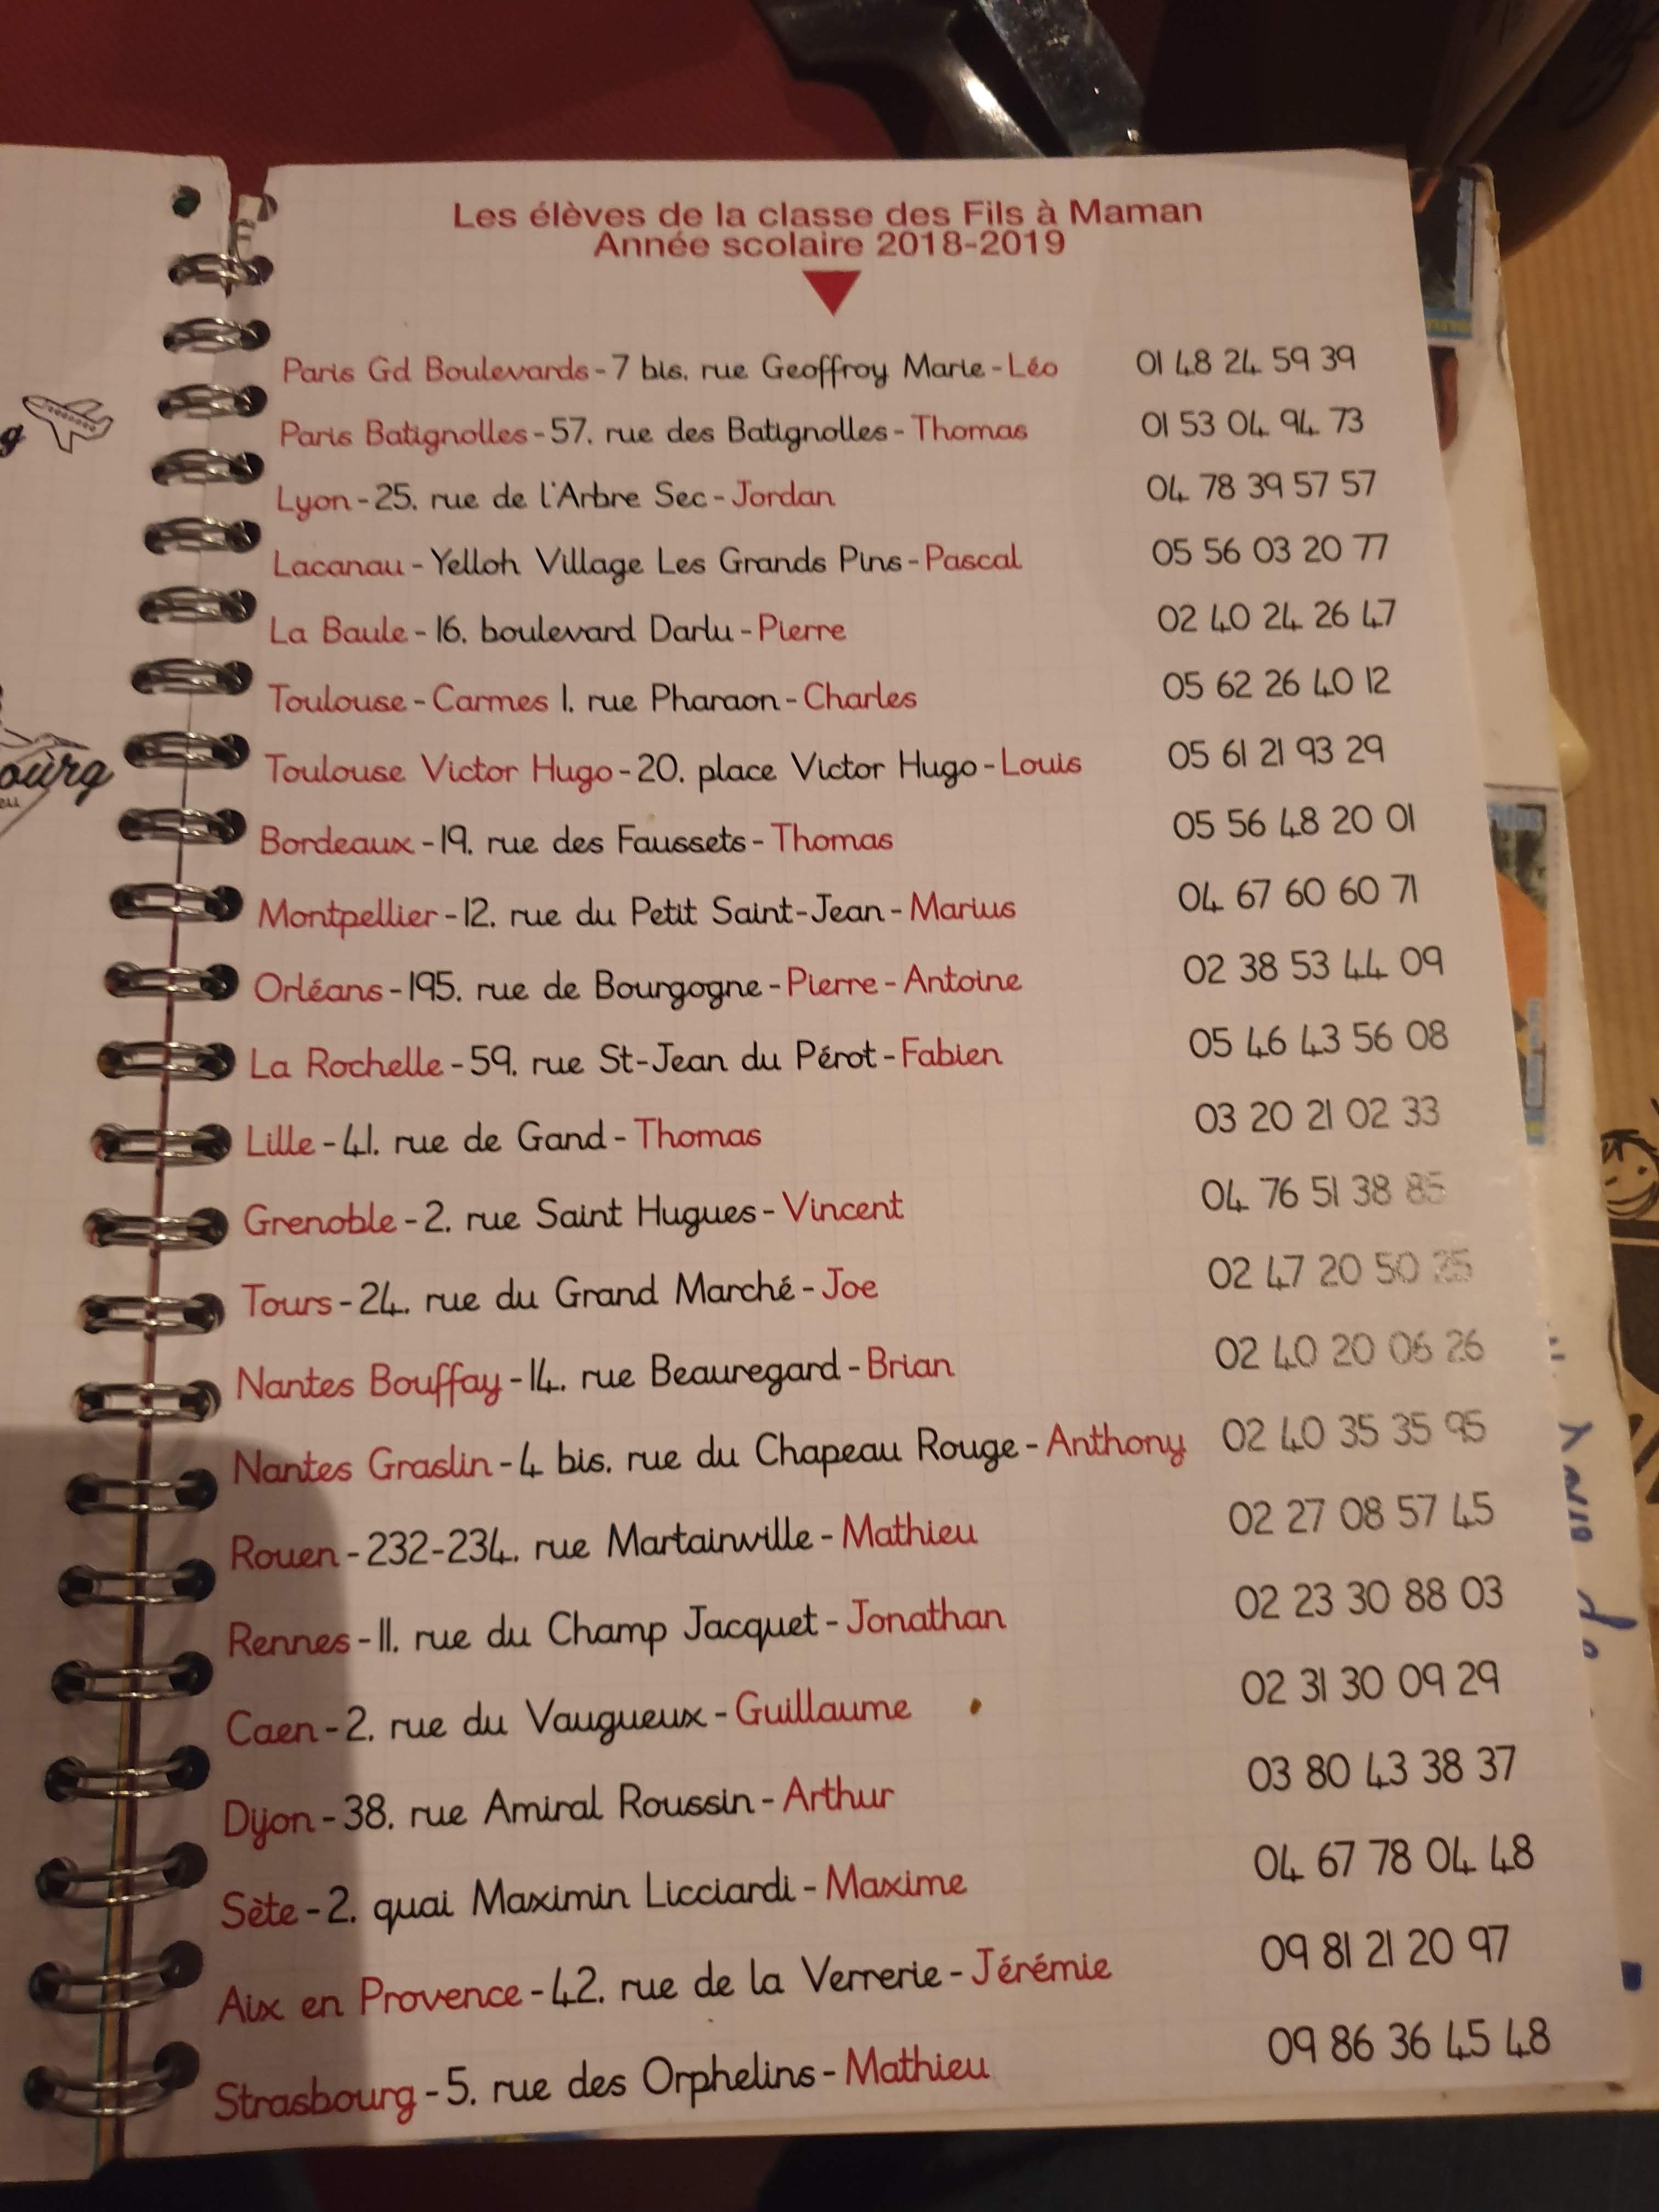 Les élèves de la classe des Fils à Maman
Année scolaire 2018-2019
Paris Gd Boulevards - 7 bis, rue Geoffroy Marie - Léo 01 48 24 59 39
Paris Batignolles - 57, rue des Batignolles - Thomas 01 53 04 94 73
Lyon - 25, rue de l'Arbre Sec - Jordan 04 78 39 57 57
Lacanau - Yelloh Village Les Grands Pins - Pascal 05 56 03 20 77
La Baule - 16, boulevard Darlu - Pierre 02 40 24 26 47
Toulouse - Carmes 1, rue Pharaon - Charles 05 62 26 40 12
Toulouse Victor Hugo - 20, place Victor Hugo - Louis 05 61 21 93 29
Bordeaux - 19, rue des Faussets - Thomas 05 56 48 20 01
Montpellier - 12, rue du Petit Saint-Jean - Marius 04 67 60 60 71
Orléans - 195, rue de Bourgogne - Pierre - Antoine 02 38 53 44 09
La Rochelle - 59, rue St-Jean du Pérot - Fabien 05 46 43 56 08
Lille - 41, rue de Gand - Thomas 03 20 21 02 33
Grenoble - 2, rue Saint Hugues - Vincent 04 76 51 38 85
Tours - 24, rue du Grand Marché - Joe 02 47 20 50 25
Nantes Bouffay - 14, rue Beauregard - Brian 02 40 20 06 26
Nantes Graslin - 4 bis, rue du Chapeau Rouge - Anthony 02 40 35 35 95
Rouen - 232-234, rue Martainville - Mathieu 02 27 08 57 45
Rennes - 11, rue du Champ Jacquet - Jonathan 02 23 30 88 03
Caen - 2, rue du Vaugueux - Guillaume 02 31 30 09 29
Dijon - 38, rue Amiral Roussin - Arthur 03 80 43 38 37
Sète - 2, quai Maximin Licciardi - Maxime 04 67 78 04 48
Aix en Provence - 42, rue de la Verrerie - Jérémie 09 81 21 20 97
Strasbourg - 5, rue des Orphelins - Mathieu 09 86 36 45 48